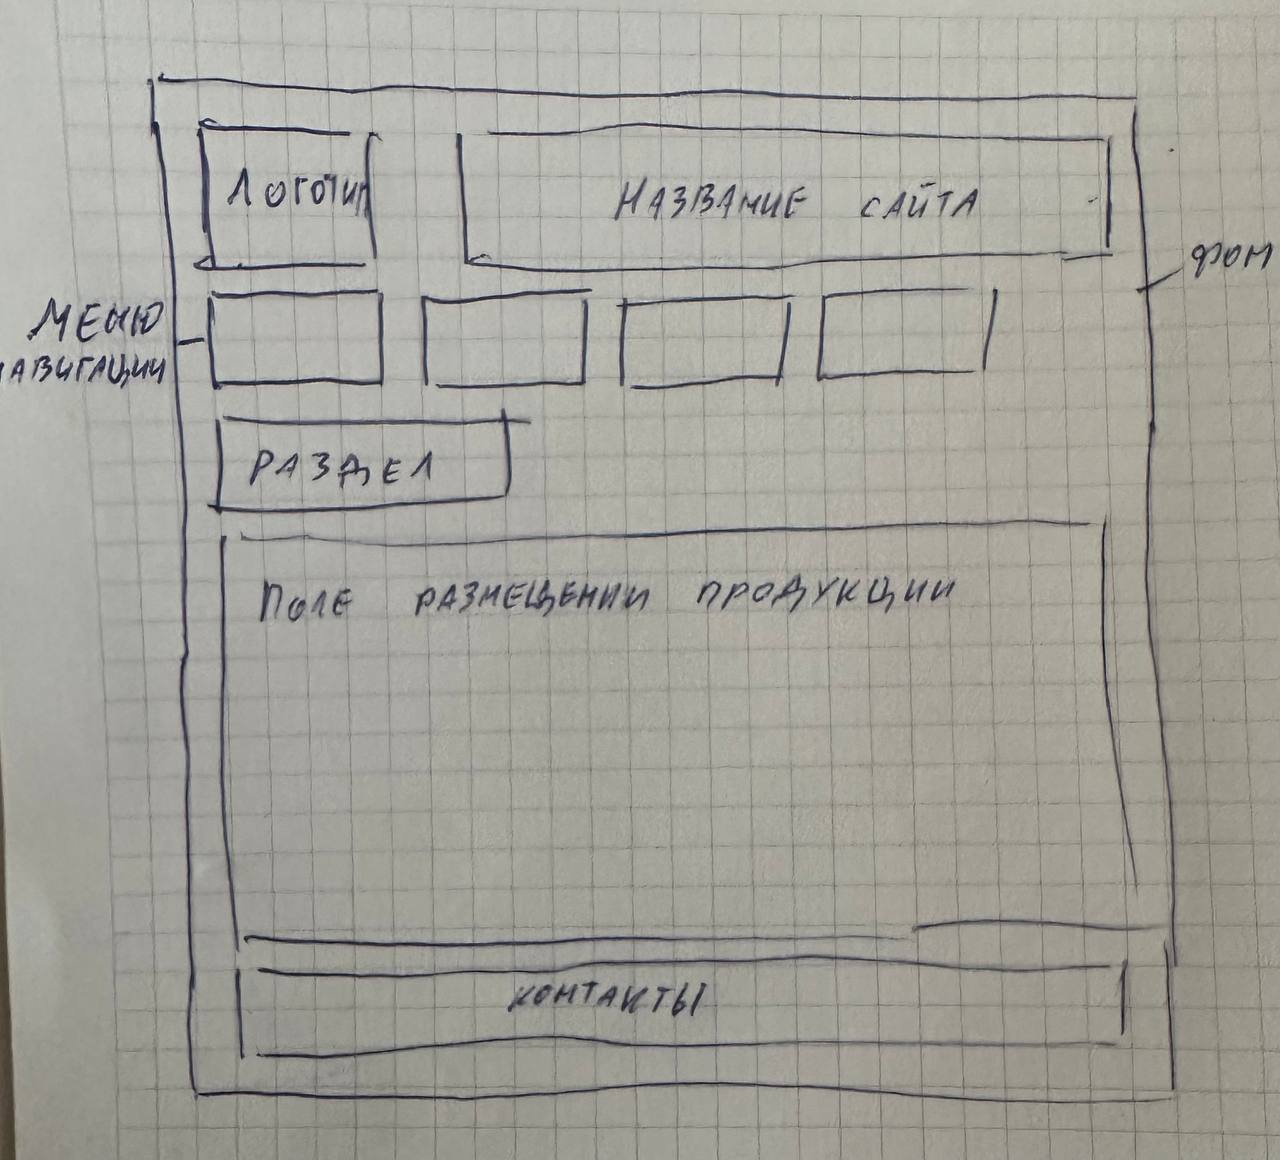 Логотип
Название сайта
фон
Меню
навигации
Раздел
Поле размещении продукции
контакты